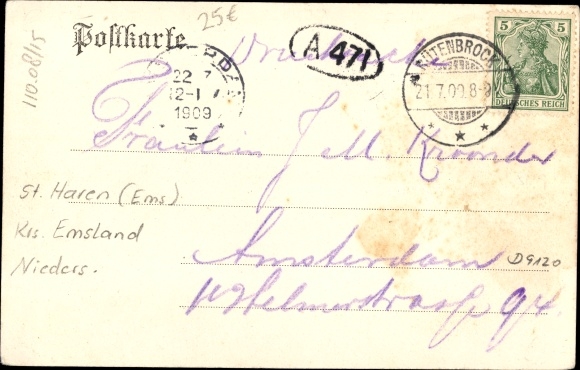 25€
110.08/15
Postkarte
Drucksache
A 471
RÜTENBROCK
21.7.09.8-9
5 5
DEUTSCHES REICH
22 7
12-1
1909
Fräulein J M.
St. Haren (Ems)
Krs. Emsland
Nieders.
Amsterdam
D9120
94.